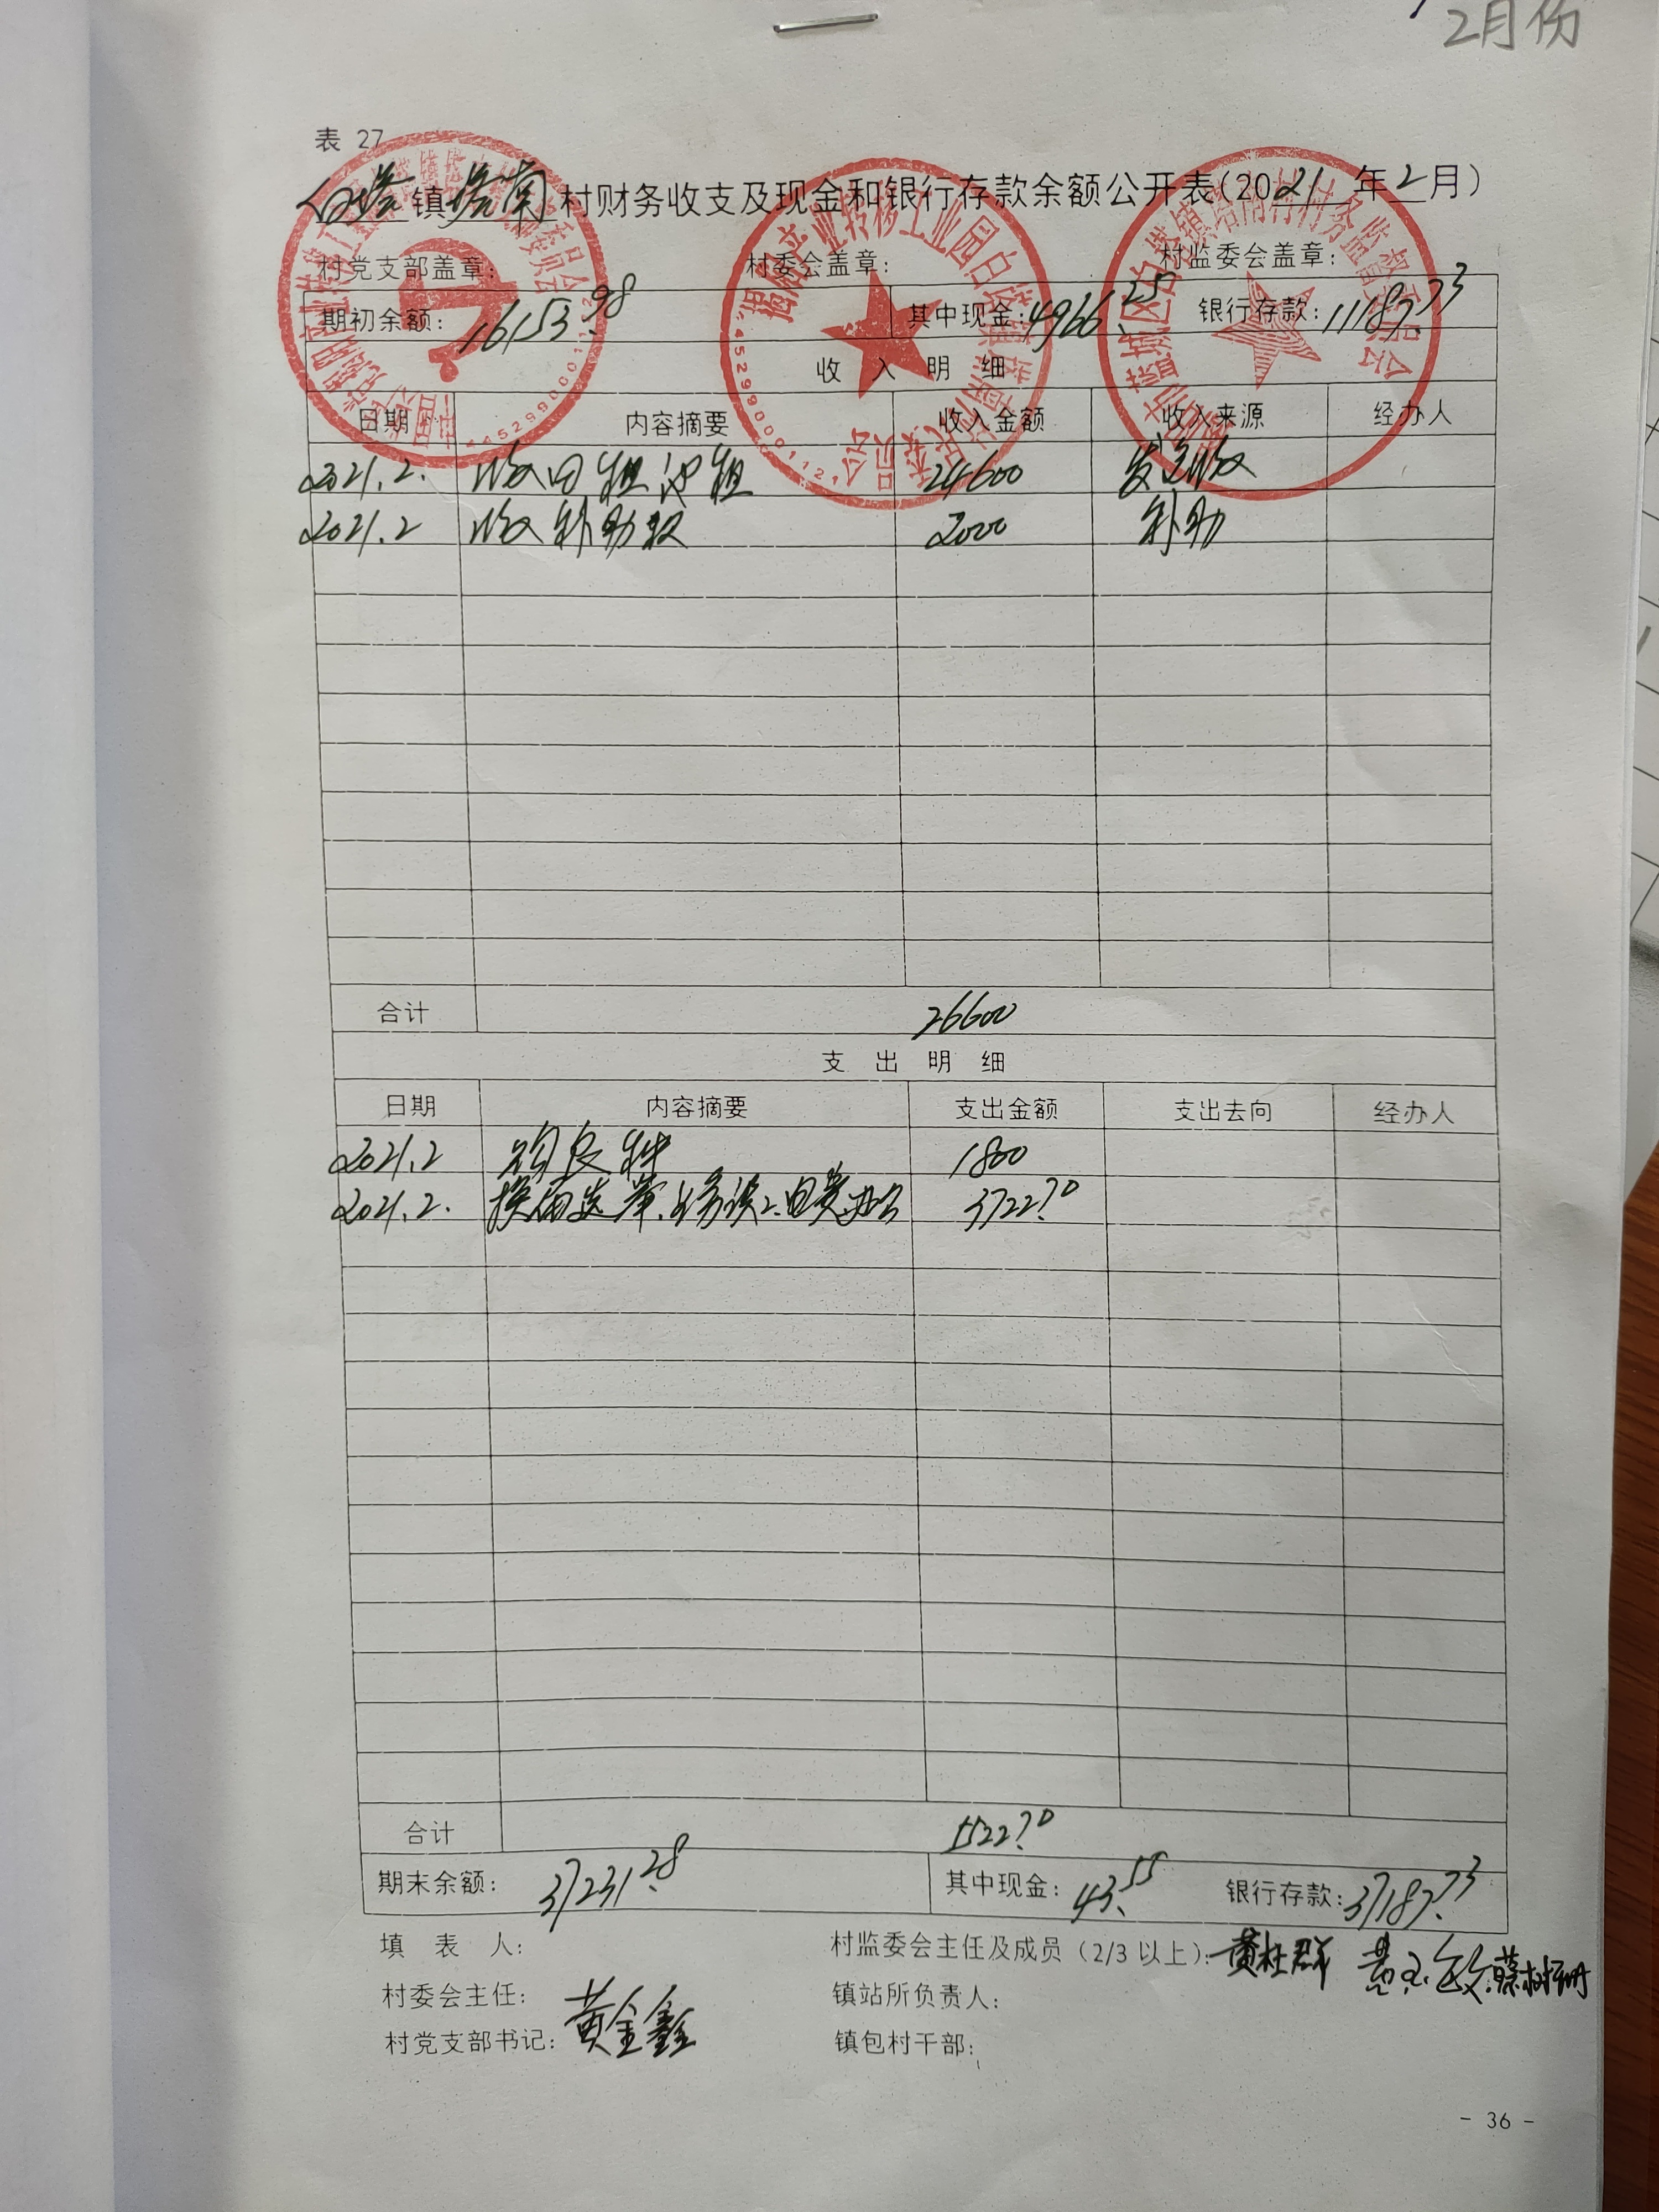 2月份
表 27
白塔镇塔南村财务收支及现金和银行存款余额公开表(2021年2月)
村党支部盖章: 村委会盖章: 村监委会盖章:
期初余额: 16153.98 其中现金: 4966.25 银行存款: 11187.73
收 入 明 细
日期 内容摘要 收入金额 收入来源 经办人
2021.2. 收田租、池租 24600 发包收
2021.2 收补助款 2000 补助
合计 26600
支 出 明 细
日期 内容摘要 支出金额 支出去向 经办人
2021.2 1800
2021.2. 换届选举、电费、办公 3722.70
合计 5522.70
期末余额: 37231.28 其中现金: 43.55 银行存款: 37187.73
填 表 人: 村监委会主任及成员(2/3 以上):
村委会主任: 黄金鑫 镇站所负责人:
村党支部书记: 镇包村干部:
- 36 -